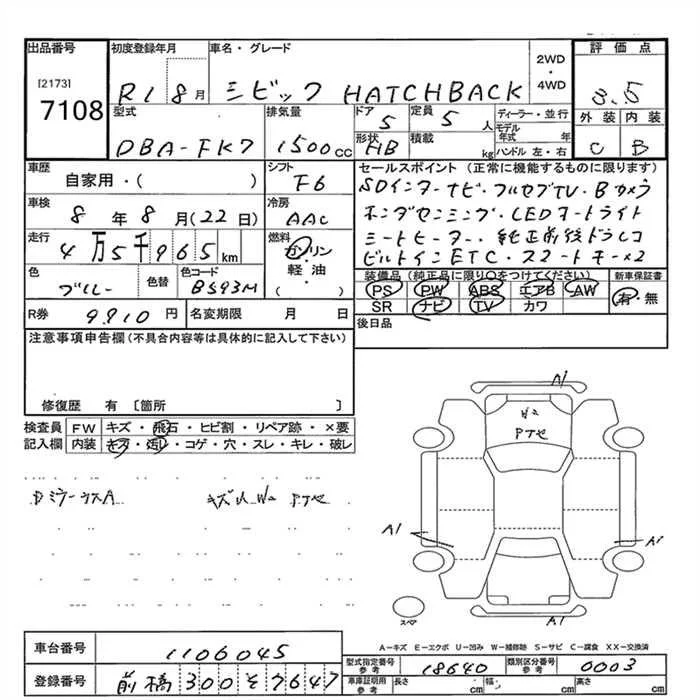 出品番号 初度登録年月 車名・グレード 2WD・4WD 評価点
[2173]
7108 R1 8月 シビック HATCHBACK 3.5
型式 排気量 ドア 定員 ディーラー・並行 外装 内装
DBA-FK7 1500cc 5 5人 モデル年式 年 C B
形状 積載 ハンドル 左・右
HB kg
車歴 シフト セールスポイント (正常に機能するものに限ります)
自家用・( ) F6 SDインターナビ・フルセグTV・Bカメラ
車検 冷房 ホンダセンシング・LEDオートライト
8年8月(22日) AAC シートヒーター・純正前後ドラレコ
走行 燃料 ビルトインETC・スマートキー×2
4万5千965km ガソリン
軽・油
( )
色 色替 色コード 装備品 (純正品に限り○をつけてください) 新車保証書
ブルー B593M PS PW ABS エアB AW 有・無
SR ナビ TV カワ
R券 9910円 名変期限 月 日 後日品
注意事項申告欄(不具合内容等は具体的に記入して下さい)
修復歴 有 〔箇所 〕
検査員記入欄 FW キズ・飛石・ヒビ割・リペア跡・×要
内装 キズ・汚レ・コゲ・穴・スレ・キレ・破レ
A1
W2
Pアセ
A1
A1
A1
スペア
A-キズ E-エクボ U-凹み W-補修跡 S-サビ C-腐食 XX-交換済
車台番号 1106045
型式指定番号 参考 18640 類別区分番号 参考 0003
登録番号 前橋 300 そ 7647
車庫証明用 参考 長さ cm 幅 cm 高さ cm